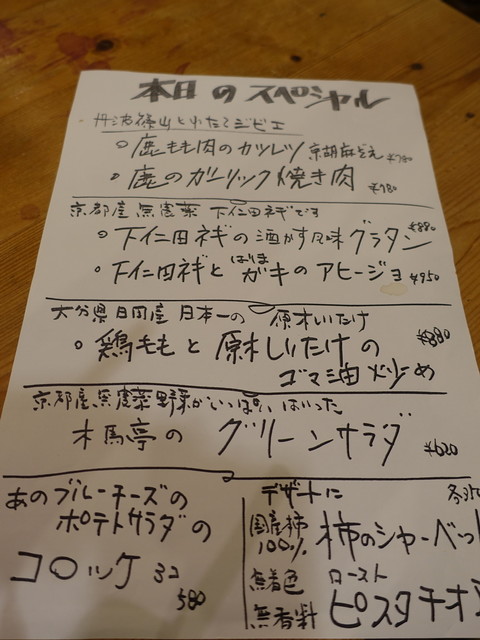 本日のスペシャル
丹波篠山とれたてジビエ
○鹿もも肉のカツレツ 京胡麻ぞえ ¥780
○鹿のガーリック焼き肉 ¥780
京都産 無農薬 下仁田ネギです
○下仁田ネギの酒かす風味グラタン ¥880
○下仁田ネギとガキのアヒージョ ¥950
大分県日田産 日本一の 原木しいたけ
○鶏ももと原木しいたけの ¥880
ゴマ油炒め
京都産無農薬野菜がいっぱいはいった
木馬亭のグリーンサラダ ¥620
あのブルーチーズの
ポテトサラダの
コロッケ 3コ
580
デザートに
国産柿100% 柿のシャーベッ
無着色
無香料
ロースト
ピスタチオ